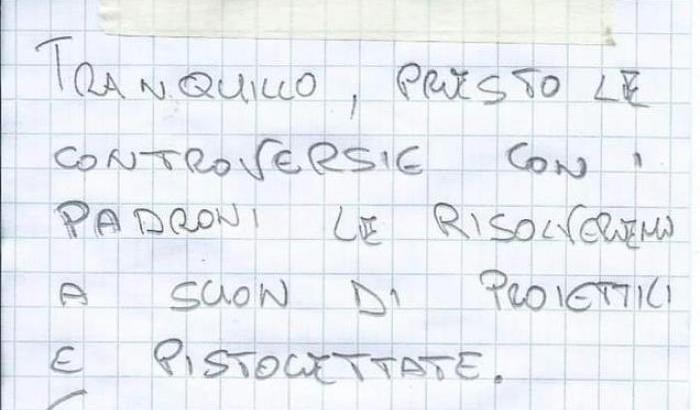 TRANQUILLO, PRESTO LE
CONTROVERSIE CON I
PADRONI LE RISOLVEREMO
A SUON DI PROIETTILI
E PISTOLETTATE.